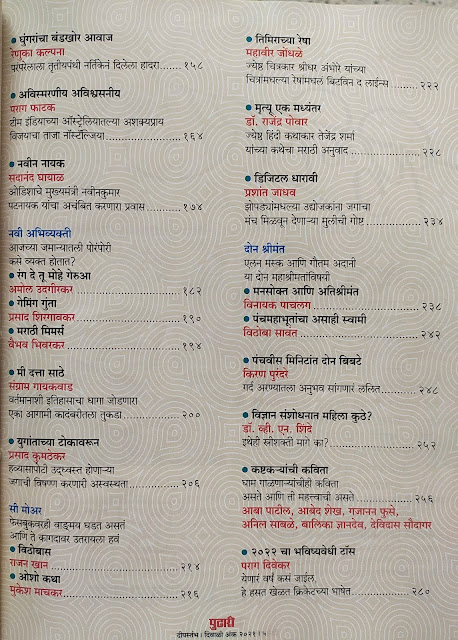 ● घुंगरांचा बंडखोर आवाज
रेणुका कल्पना
परंपरेलाला तृतीयपंथी नर्तिकेनं दिलेला हादरा......१५८
● अविस्मरणीय अविश्वसनीय
पराग फाटक
टीम इंडियाच्या ऑस्ट्रेलियातल्या अशक्यप्राय
विजयाचा ताजा नॉस्टॅल्जिया......१६४
● नवीन नायक
सदानंद घायाळ
ओडिशाचे मुख्यमंत्री नवीनकुमार
पटनायक यांचा अचंबित करणारा प्रवास......१७४
नवी अभिव्यक्ती
आजच्या जमान्यातली पोरंपोरी
कसे व्यक्त होतात?
● रंग दे तू मोहे गेरुआ
अमोल उदगीरकर......१८२
● गेमिंग गुंता
प्रसाद शिरगावकर......१९०
● मराठी मिमर्स
वैभव भिवरकर......१९४
● मी दत्ता साठे
संग्राम गायकवाड
वर्तमानाशी इतिहासाचा धागा जोडणारा
एका आगामी कादंबरीतला तुकडा......२००
● युगांताच्या टोकावरून
प्रसाद कुमठेकर
हव्यासापोटी उद्ध्वस्त होणाऱ्या
जगाची विषण्ण करणारी अस्वस्थता......२०६
सी मोअर
फेसबुकवरही वाङ्मय घडत असतं
आणि ते कागदावर उतरायला हवं
● विठोबास
राजन खान......२१४
● ओशो कथा
मुकेश माचकर......२१६
● तिमिराच्या रेषा
महावीर जोंधळे
ज्येष्ठ चित्रकार श्रीधर अंभोरे यांच्या
चित्रांमधल्या रेषांमधलं बिटविन द लाईन्स......२२२
● मृत्यू एक मध्यंतर
डॉ. राजेंद्र पोवार
ज्येष्ठ हिंदी कथाकार तेजेंद्र शर्मा
यांच्या कथेचा मराठी अनुवाद......२२८
● डिजिटल धारावी
प्रशांत जाधव
झोपडपट्ट्यांमधल्या उद्योजकांना जगाचा
मंच मिळवून देणाऱ्या मुलीची गोष्ट......२३४
दोन श्रीमंत
एलन मस्क आणि गौतम अदानी
या दोन महाश्रीमंतांविषयी
● मनसोक्त आणि अतिश्रीमंत
विनायक पाचलग......२३८
● पंचमहाभूतांचा असाही स्वामी
विठोबा सावंत......२४२
● पंचवीस मिनिटांत दोन बिबटे
किरण पुरंदरे
गर्द अरण्यातला अनुभव सांगणारं ललित......२४८
● विज्ञान संशोधनात महिला कुठे?
डॉ. व्ही. एन. शिंदे
इथेही स्त्रीशक्ती मागे का?......२५२
● कष्टकऱ्यांची कविता
घाम गाळणाऱ्यांचीही कविता
असते आणि ती महत्त्वाची असते......२५६
आबा पाटील, आबेद शेख, गजानन फुसे,
अनिल साबळे, बालिका ज्ञानदेव, देविदास सौदागर
● २०२२ चा भविष्यवेधी टॉस
पराग दिवेकर
येणारं वर्ष कसं जाईल,
हे हसत खेळत क्रिकेटच्या भाषेत......२८०
पुढारी
दीपस्तंभ । दिवाळी अंक २०२१ । ५